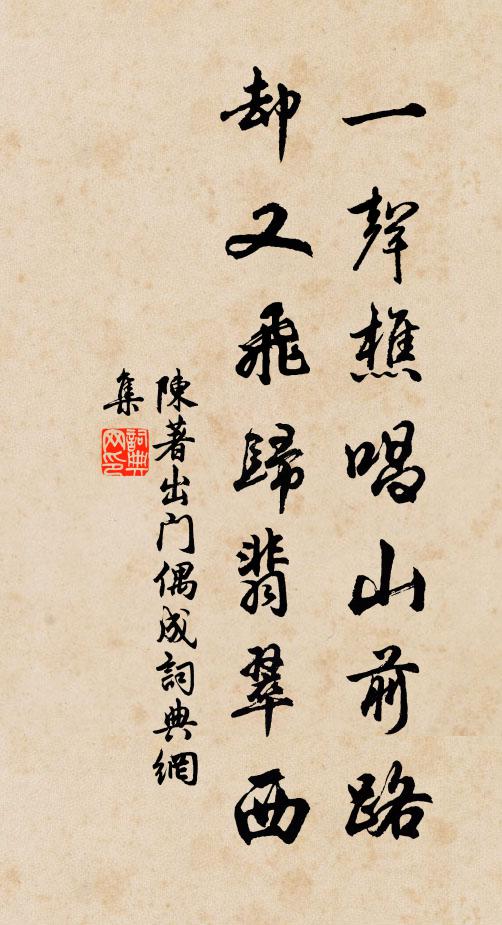 一聲樵唱山前路
却又飛歸翡翠西
陳著出门偶成詞典網
集
詞典
网印